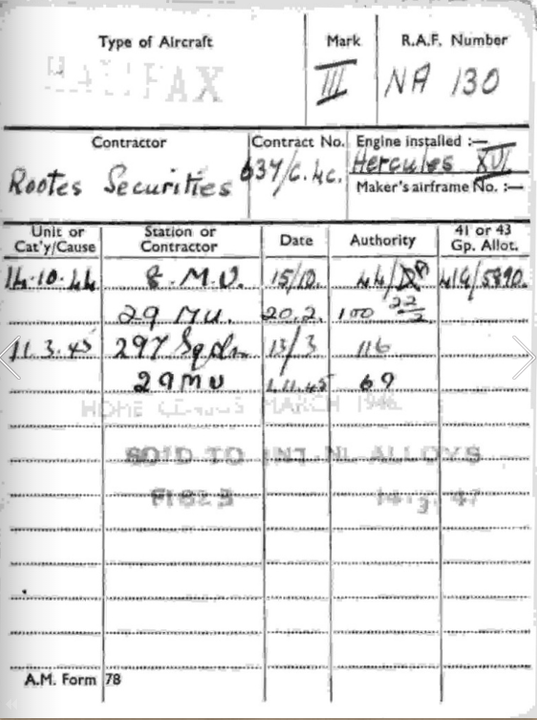 Type of Aircraft Mark R.A.F. Number
HALIFAX III NA 130
Contractor Contract No. Engine installed :—
Rootes Securities 637/C.4c. Hercules XVI
Maker's airframe No. :—
Unit or Cat'y/Cause Station or Contractor Date Authority 41 or 43 Gp. Allot.
14.10.44 8.M.U. 15/10. 44/ 41G/5890.
29 MU. 20.2. 100 22/2
11.3.45 297 Sqdn 13/3 116
29 MU 1.11.45 69
HOME CENSUS MARCH 1946
SOLD TO INT.NL ALLOYS
F1823 14.3.47
A.M. Form 78